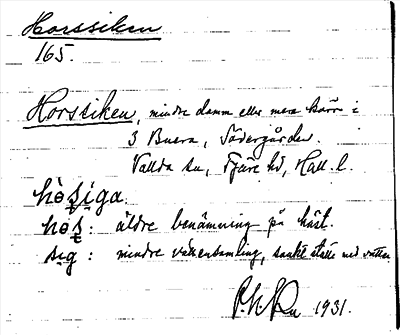 Horssiken
165.
Horssiken, mindre damm eller mosse kärr i
3 Buera, Södergården.
Vallda sn, Fjäre hd, Hall. l.
hòs̱i̱ga.
hos̱: äldre benämning på häst.
si̱g: mindre vattensamling, sankt ställe med vatten
1931.